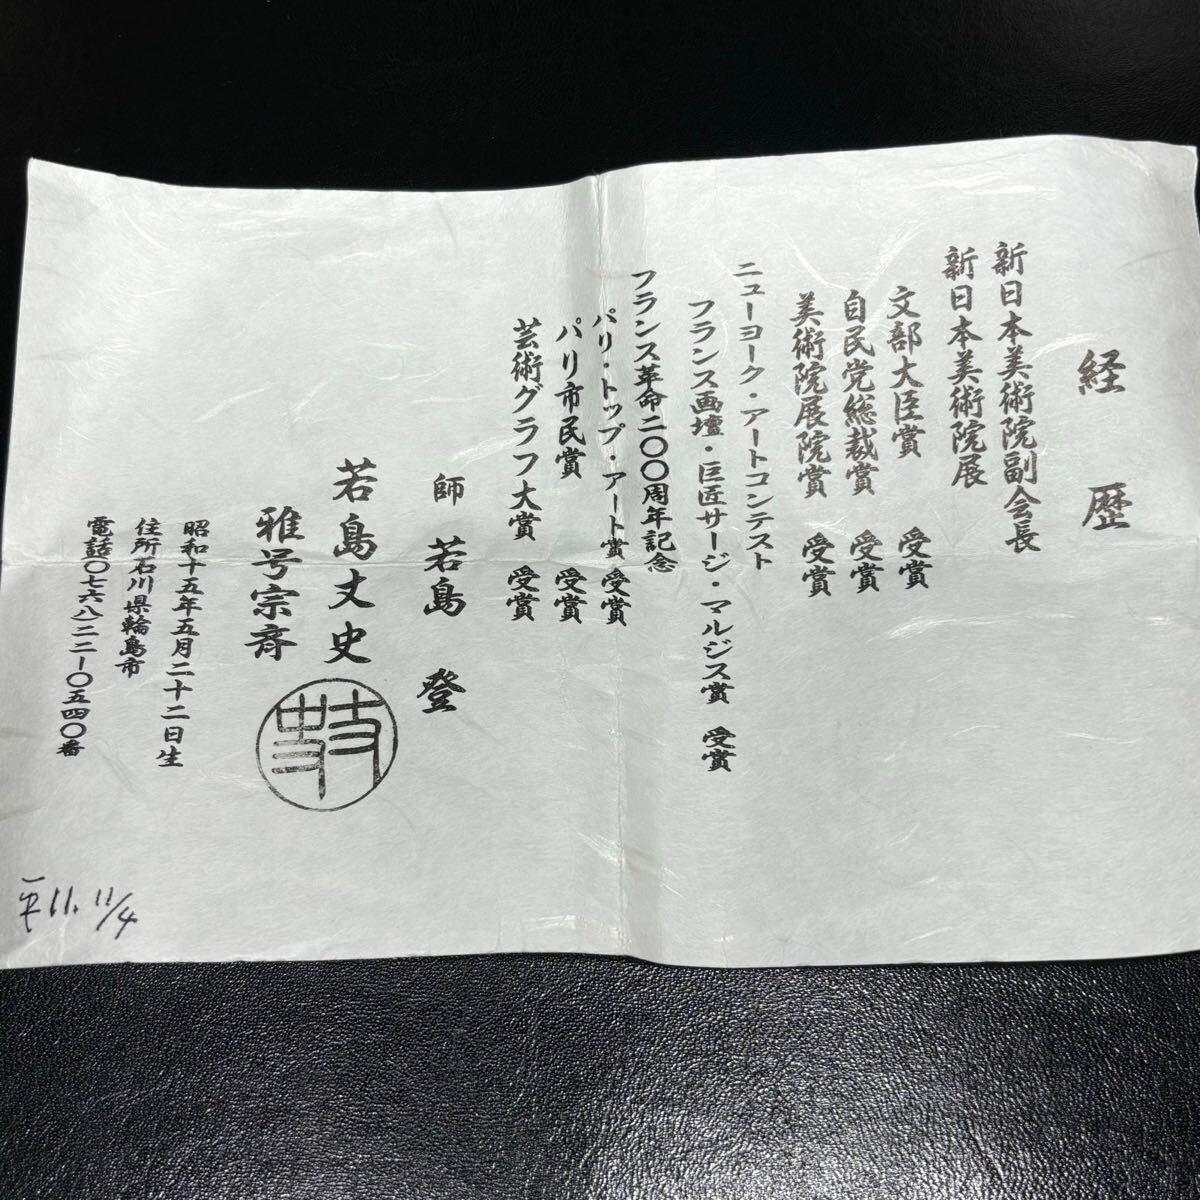 経歴
新日本美術院副会長
新日本美術院展
文部大臣賞 受賞
自民党総裁賞 受賞
美術院展院賞 受賞
ニューヨーク・アートコンテスト
フランス画壇・巨匠サージ・マルジス賞 受賞
フランス革命二〇〇周年記念
パリ・トップ・アート賞 受賞
パリ市民賞 受賞
芸術グラフ大賞 受賞
師 若島 登
若島丈史
雅号宗斉
昭和十五年五月二十二日生
住所石川県輪島市
電話〇七六八二二ー〇五四〇番
平11. 11/4